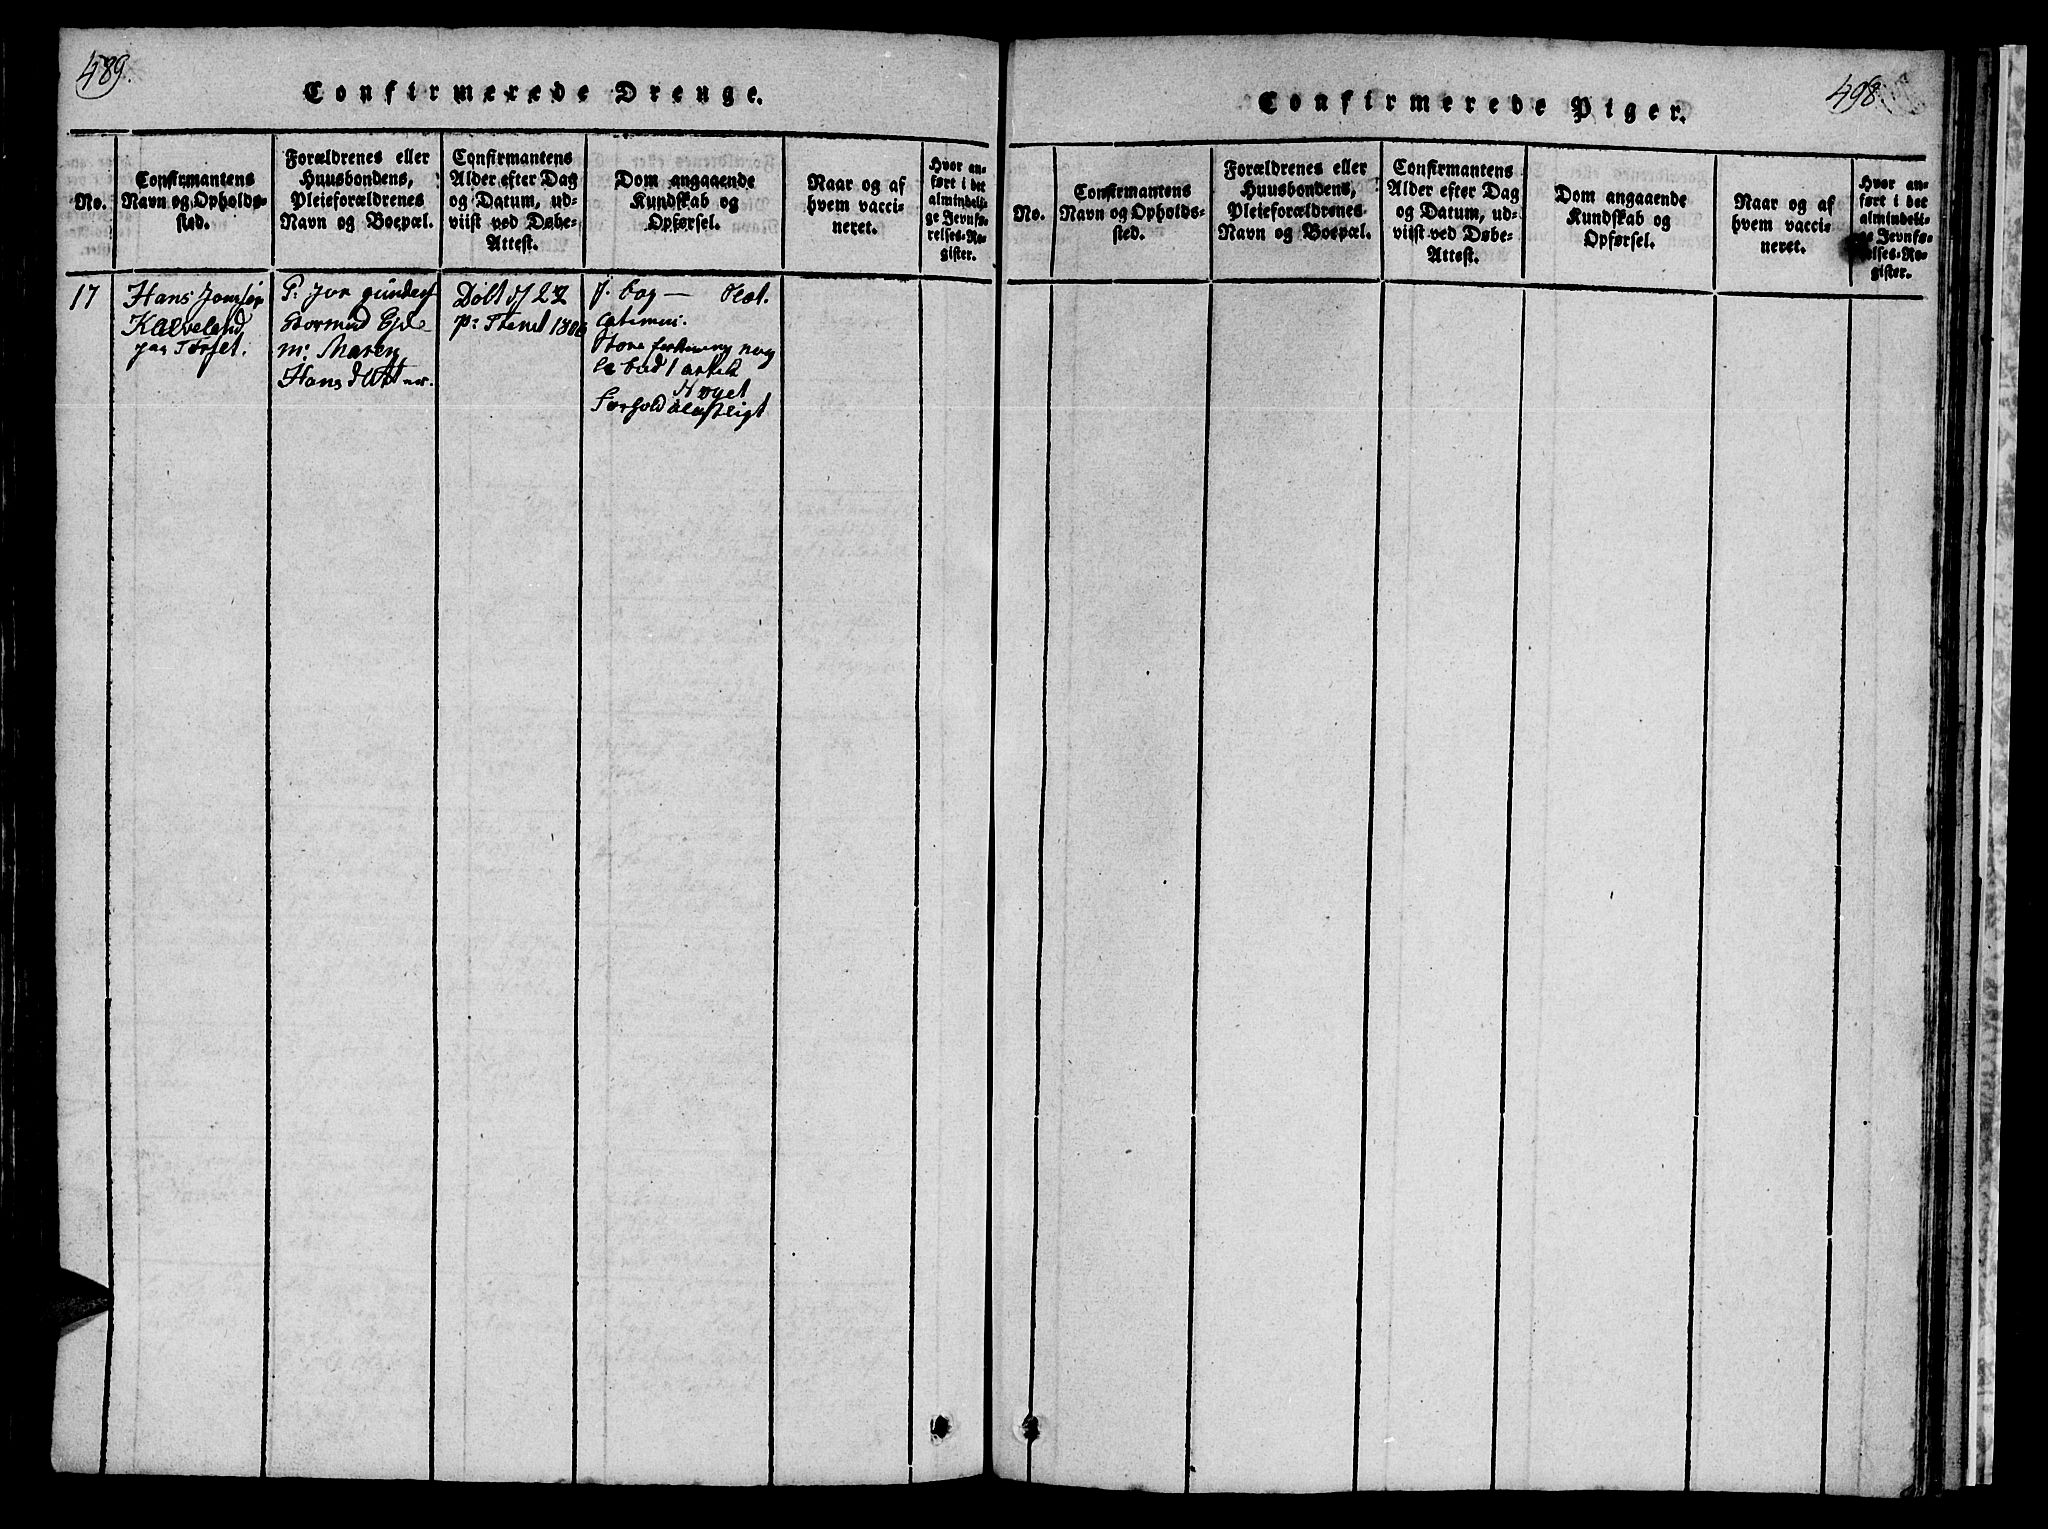 489.
Confirmerede Drenge.
No.
Confirmantens
Navn og Opholds-
sted.
Forældrenes eller
Huusbondens,
Pleieforældrenes
Navn og Boepæl.
Confirmantens
Alder efter Dag
og Datum, ud-
viist ved Døbe-
Attest.
Dom angaaende
Kundskab og
Opførsel.
Naar og af
hvem vacci-
neret.
Hvor an-
ført i det
almindeli-
ge Jevnfø-
relses-Re-
gister.
17
Hans
Kalveland
F:
m: Maren
Hans datter.
Døbt
1806
f. bog —
498
Confirmerede Piger.
No.
Confirmantens
Navn og Opholds-
sted.
Forældrenes eller
Huusbondens,
Pleieforældrenes
Navn og Boepæl.
Confirmantens
Alder efter Dag
og Datum, ud-
viist ved Døbe-
Attest.
Dom angaaende
Kundskab og
Opførsel.
Naar og af
hvem vacci-
neret.
Hvor an-
ført i det
almindeli-
ge Jevnfø-
relses-Re-
gister.